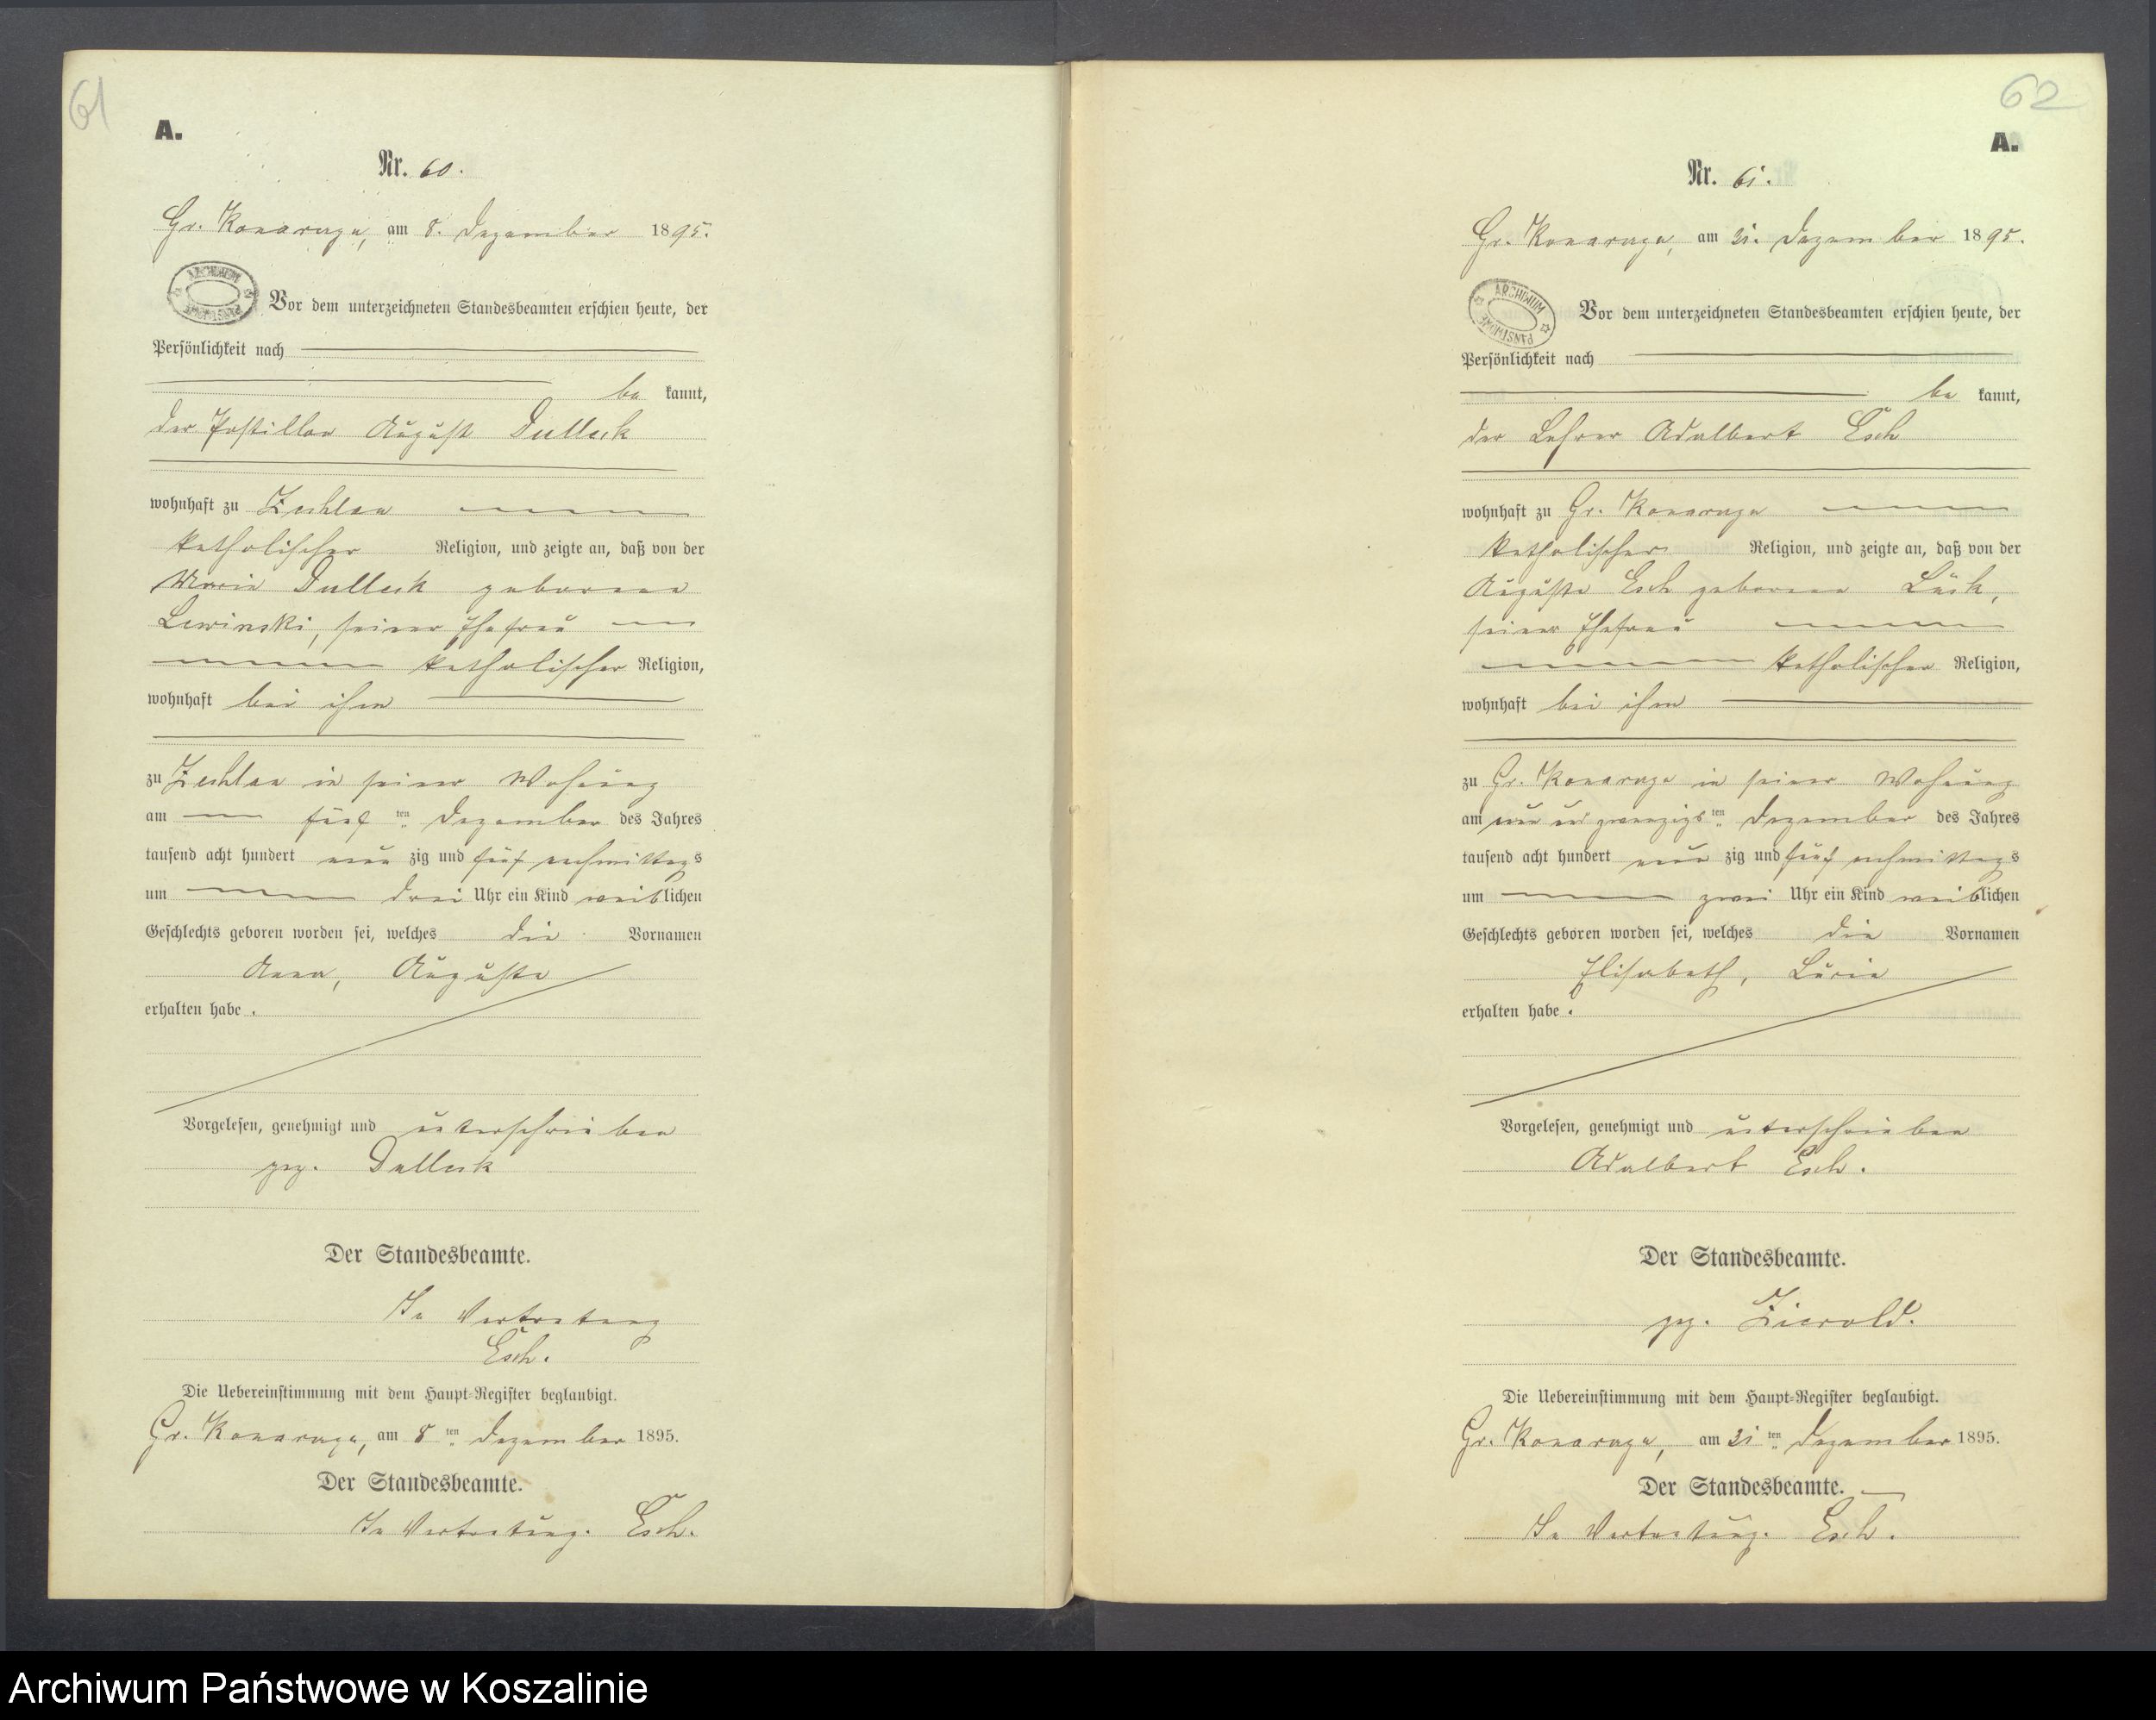 61
A.
Nr. 60.
Gr. Konarzyn, am 8. Dezember 1895.
ARCHIWUM PAŃSTWOWE
Vor dem unterzeichneten Standesbeamten erschien heute, der
Persönlichkeit nach
be kannt,
der Postillon August Dulleck
wohnhaft zu Zechlau
katholischer Religion, und zeigte an, daß von der
Maria Dulleck geborene
Lewinski, seiner Ehefrau
katholischer Religion,
wohnhaft bei ihm
zu Zechlau in seiner Wohnung
am fünf ten Dezember des Jahres
tausend acht hundert neun zig und fünf nachmittags
um drei Uhr ein Kind weiblichen
Geschlechts geboren worden sei, welches die Vornamen
Anna, Auguste
erhalten habe.
Vorgelesen, genehmigt und unterschrieben
gez. Dulleck
Der Standesbeamte.
In Vertretung
Esch.
Die Uebereinstimmung mit dem Haupt-Register beglaubigt.
Gr. Konarzyn, am 8 ten Dezember 1895.
Der Standesbeamte.
In Vertretung. Esch.
62
A.
Nr. 61.
Gr. Konarzyn, am 31. Dezember 1895.
ARCHIWUM PAŃSTWOWE
Vor dem unterzeichneten Standesbeamten erschien heute, der
Persönlichkeit nach
be kannt,
der Lehrer Adalbert Esch
wohnhaft zu Gr. Konarzyn
katholischer Religion, und zeigte an, daß von der
Auguste Esch geborene Lück,
seiner Ehefrau
katholischer Religion,
wohnhaft bei ihm
zu Gr. Konarzyn in seiner Wohnung
am neun und zwanzigs ten Dezember des Jahres
tausend acht hundert neun zig und fünf nachmittags
um zwei Uhr ein Kind weiblichen
Geschlechts geboren worden sei, welches die Vornamen
Elisabeth, Lucia
erhalten habe.
Vorgelesen, genehmigt und unterschrieben
Adalbert Esch.
Der Standesbeamte.
gez. Zierold.
Die Uebereinstimmung mit dem Haupt-Register beglaubigt.
Gr. Konarzyn, am 31 ten Dezember 1895.
Der Standesbeamte.
In Vertretung. Esch.
Archiwum Państwowe w Koszalinie